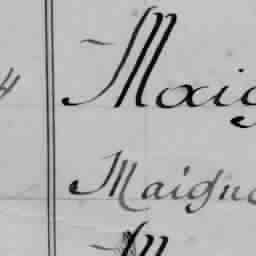 Maig
Maigne